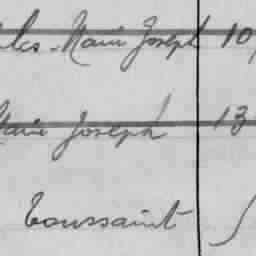 Marie Joseph 10
Marie Joseph 13
Toussaint